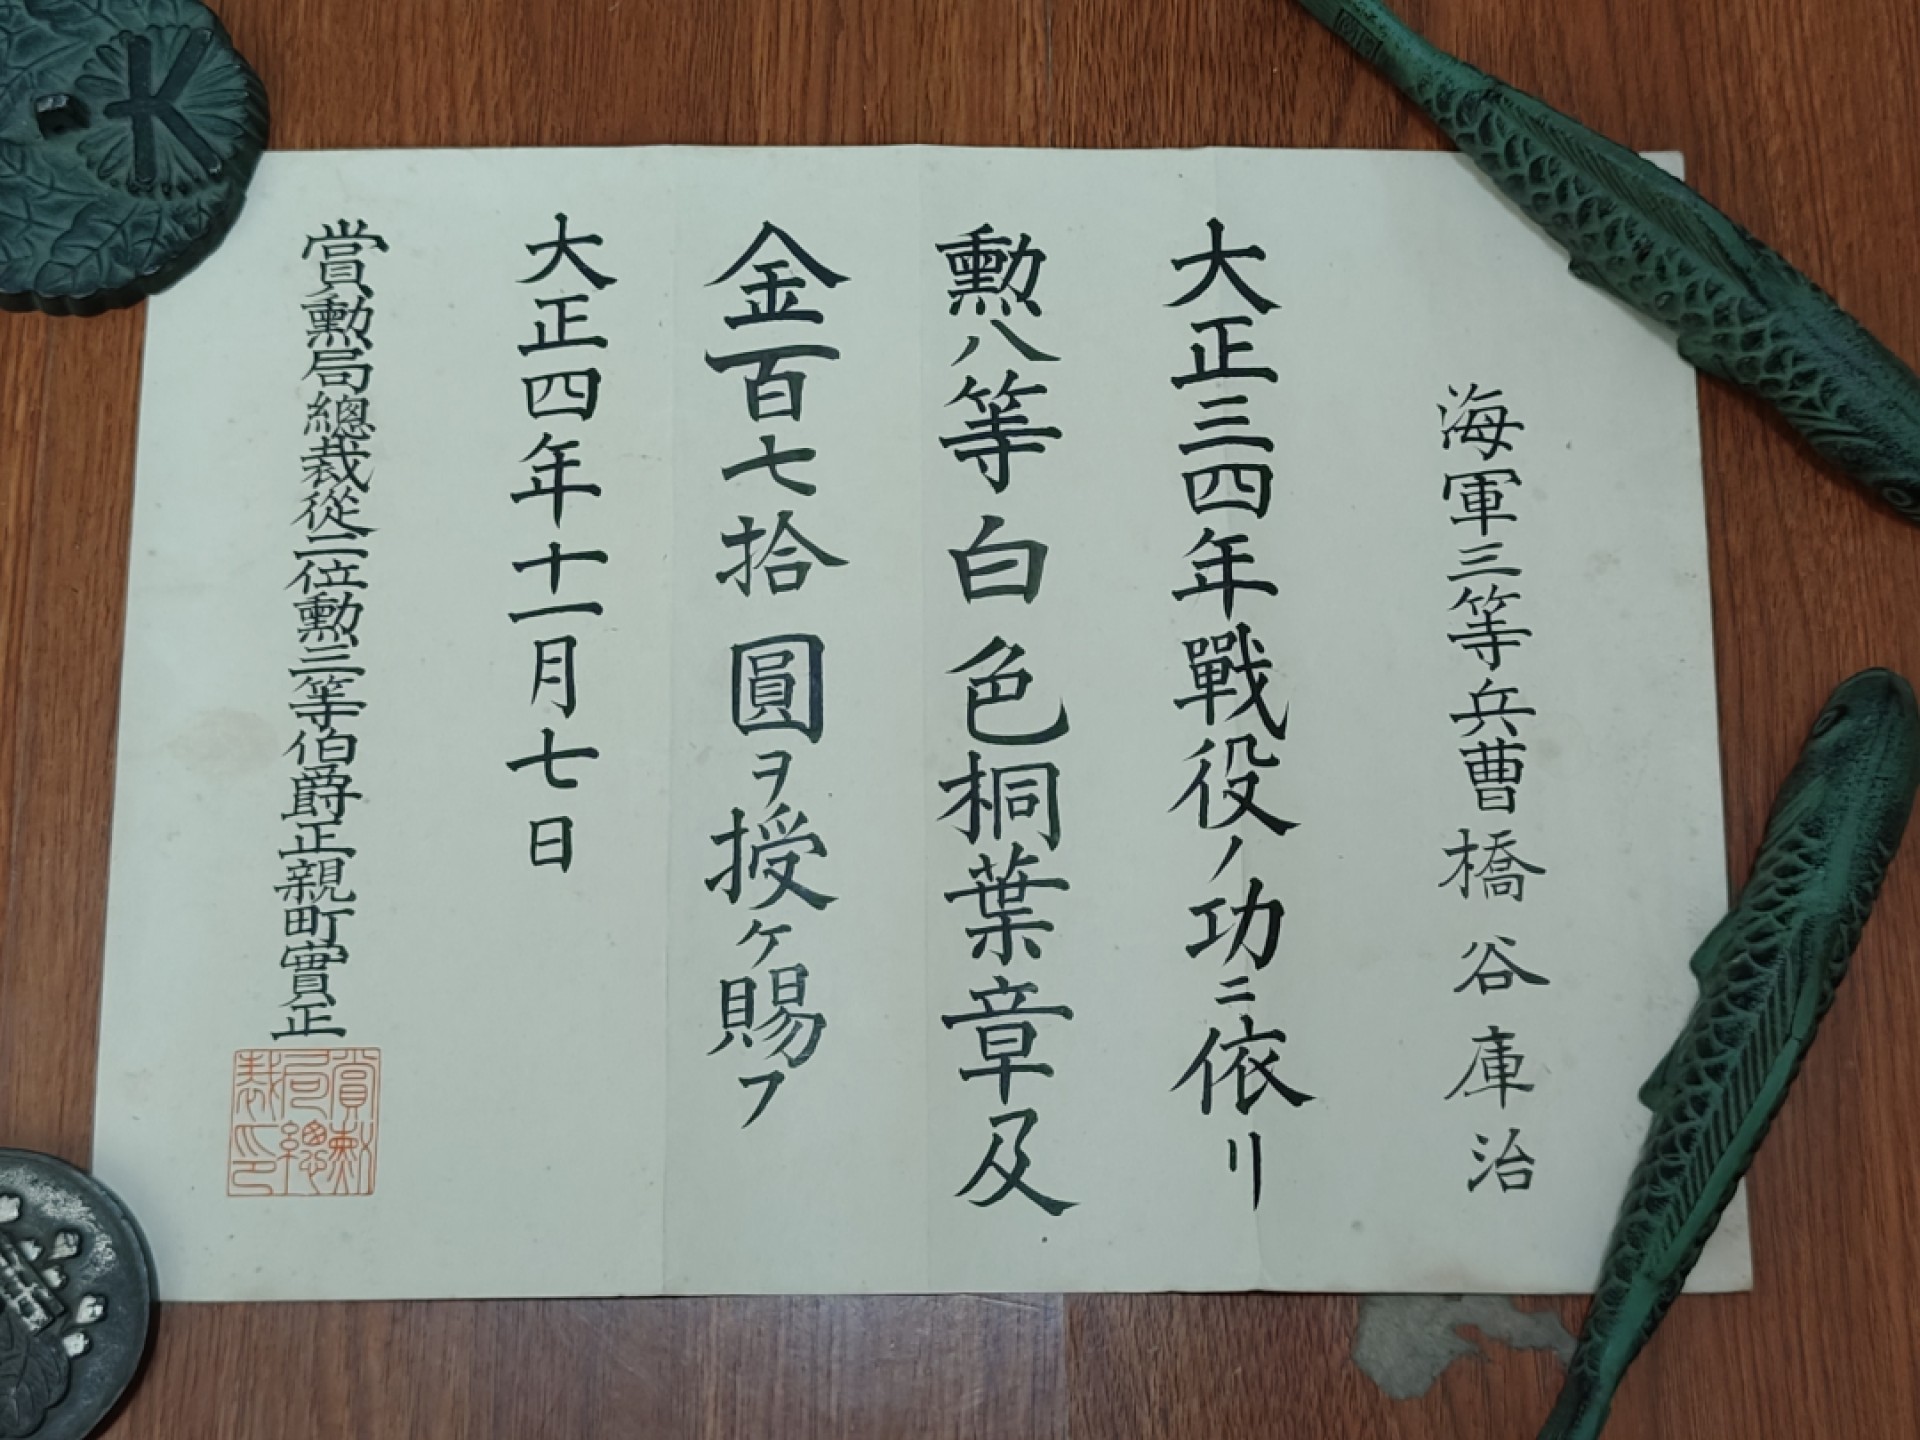 海軍三等兵曹橋谷庫治
大正三四年戰役ノ功ニ依リ
勲八等白色桐葉章及
金百七拾圓ヲ授ケ賜フ
大正四年十一月七日
賞勲局總裁從二位勲三等伯爵正親町實正
賞勲局總裁印